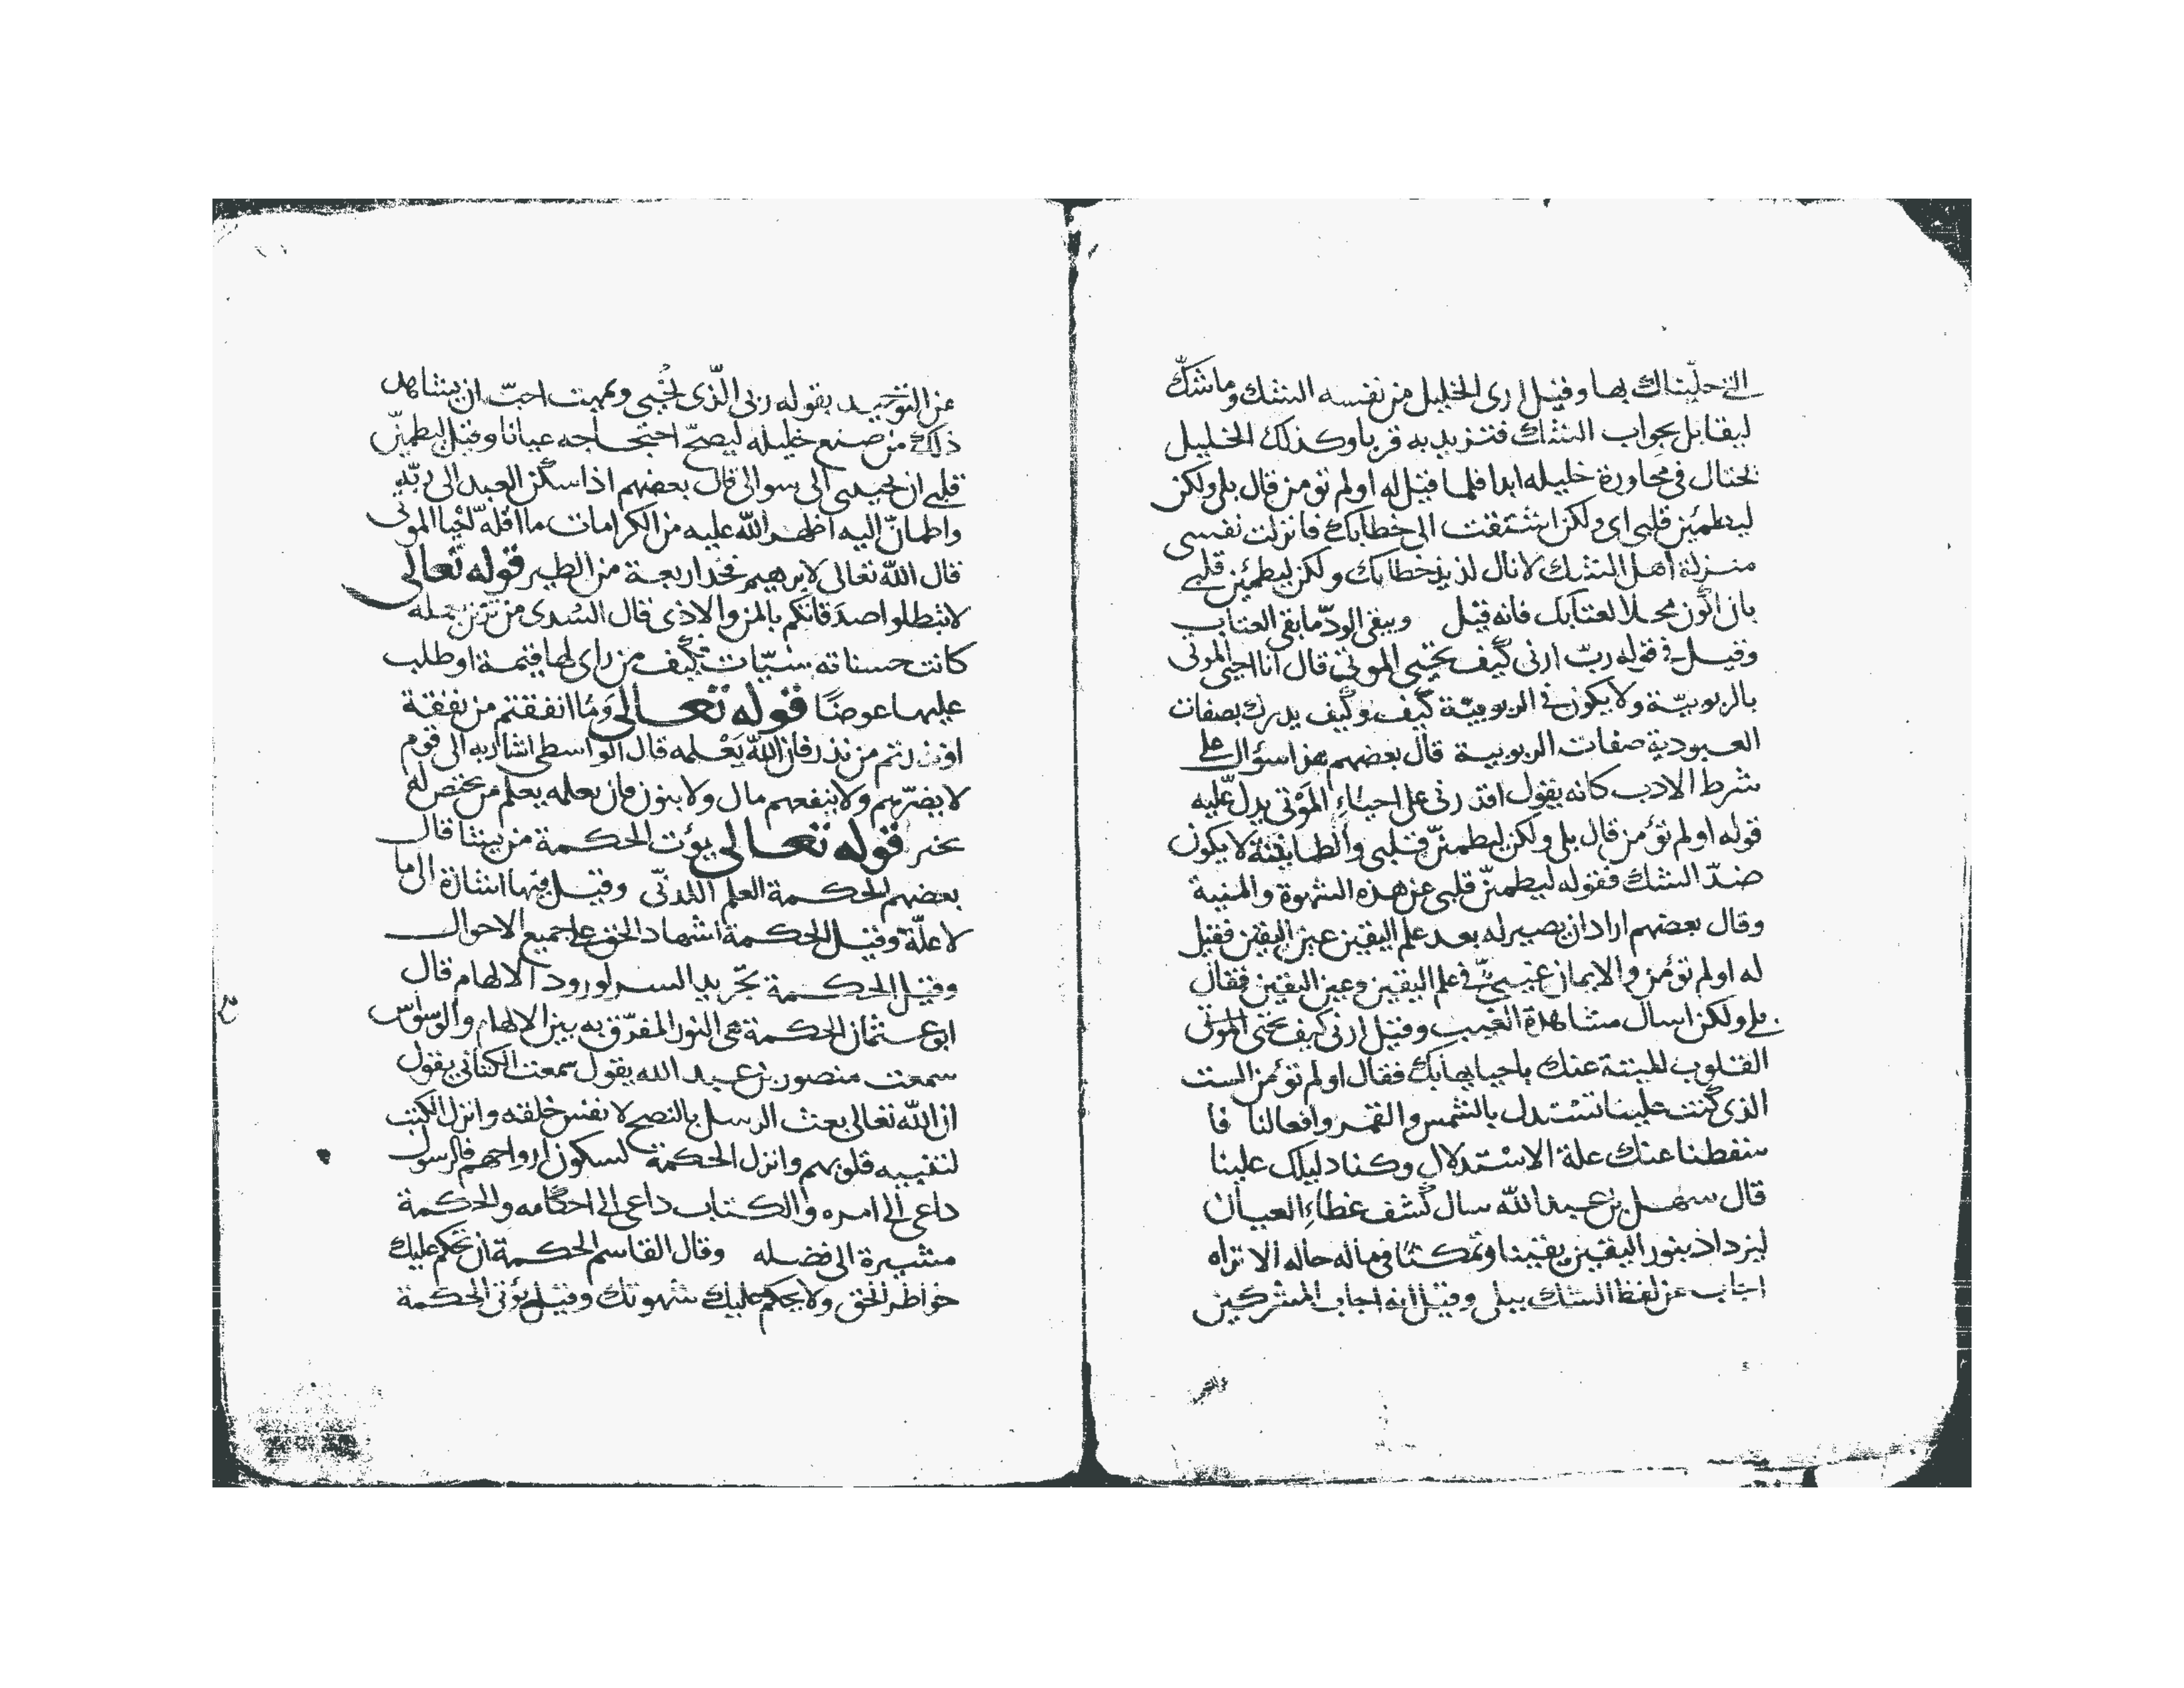 التى حلّيناك بها وقيل ارى الخليل من نفسه الشك وما شكّ
ليقابل بجواب الشك فتزيد به قربا وكذلك الخليل
يحتال فى محاورة خليله ابدا فلما قيل له اولم تومن قال بلى ولكن
ليطمئن قلبى اى ولكن اشتقت الى خطابك فانزلت نفسى
منزلة اهل الشك لانال لذيذ خطابك ولكن ليطمئن قلبى
بان اكون محلا لعتابك فانه قيل ويبقى الودّ ما بقى العتاب
وقيل فى قوله ربّ ارنى كيف تحيى الموتى قال انا احيى الموتى
بالربوبيّة ولا يكون فى الربوبيّة كيف وكيف يدرك بصفات
العبودية صفات الربوبية قال بعضهم هذا سؤال على
شرط الادب كانه يقول اقدرنى على احياء الموتى يدل عليه
قوله اولم تؤمن قال بلى ولكن ليطمئنّ قلبى والطمانينة لا يكون
ضدّ الشك فقوله ليطمئنّ قلبى عن هذه الشهوة والمنية
وقال بعضهم اراد ان يصير له بعد علم اليقين عين اليقين فقيل
له اولم تؤمن والايمان غيبىّ فى علم اليقين وعين اليقين فقال
بلى ولكن اسال مشاهدة الغيب وقيل ارنى كيف تحيى الموتى
القلوب الميتة عنك باحيايها بك فقال اولم تؤمن الست
الذى كنت علينا تستدل بالشمس والقمر وافعالنا فا
سقطنا عنك علة الاستدلال وكنا دليلك علينا
قال سهل بن عبد الله سال كشف غطاء العيان
ليزداد بنور اليقين يقينا وتمكنا فى حاله الا تراه
اجاب عن لفظ الشك ببلى وقيل انه اجاب المشركين
عن التوحيد بقوله ربى الّذى يحيى ويميت احبّ ان يشاهد
ذلك من صنع خليله ليصحّ احتجاجه عيانا وقيل ليطمئنّ
قلبى ان تجيبنى الى سوالى قال بعضهم اذا سكن العبد الى ربّه
واطمانّ اليه اظهر الله عليه من الكرامات ما اقله احيا الموتى
قال الله تعالى لابرهيم فخذ اربعة من الطير قوله تعالى
لا تبطلوا صدقاتكم بالمن والاذى قال السّدى من تزين بعمله
كانت حسناته سيّات فكيف من راى لها قيمة او طلب
عليها عوضا قوله تعالى وما انفقتم من نفقة
او نذرتم من نذر فان الله يعلمه قال الواسطى اشار به الى قوم
لا يضرّهم ولا ينفعهم مال ولا بنون فان يعلمه يعلم من يختص له
بخبر قوله تعالى يؤت الحكمة من يشا قال
بعضهم الحكمة العلم اللدنّى وقيل فيها اشارة الى ما
لا علّة وقيل الحكمة اشهاد الحق على جميع الاحوال
وقيل الحكمة تجريد السر لورود الالهام قال
ابو عثمان الحكمة هى النور المفرّق به بين الالهام والوسواس
سمعت منصور بن عبد الله يقول سمعت الكتانى يقول
ان الله تعالى بعث الرسل بالنصح لانفس خلقه وانزل الكتب
لتنبيه قلوبهم وانزل الحكمة لسكون ارواحهم فالرسول
داعى الى امره والكتاب داعى الى احكامه والحكمة
مشيرة الى فضله وقال القاسم الحكمة ان تحكم عليك
خواطر الحق ولا يحكم عليك شهوتك وقيل يؤتى الحكمة